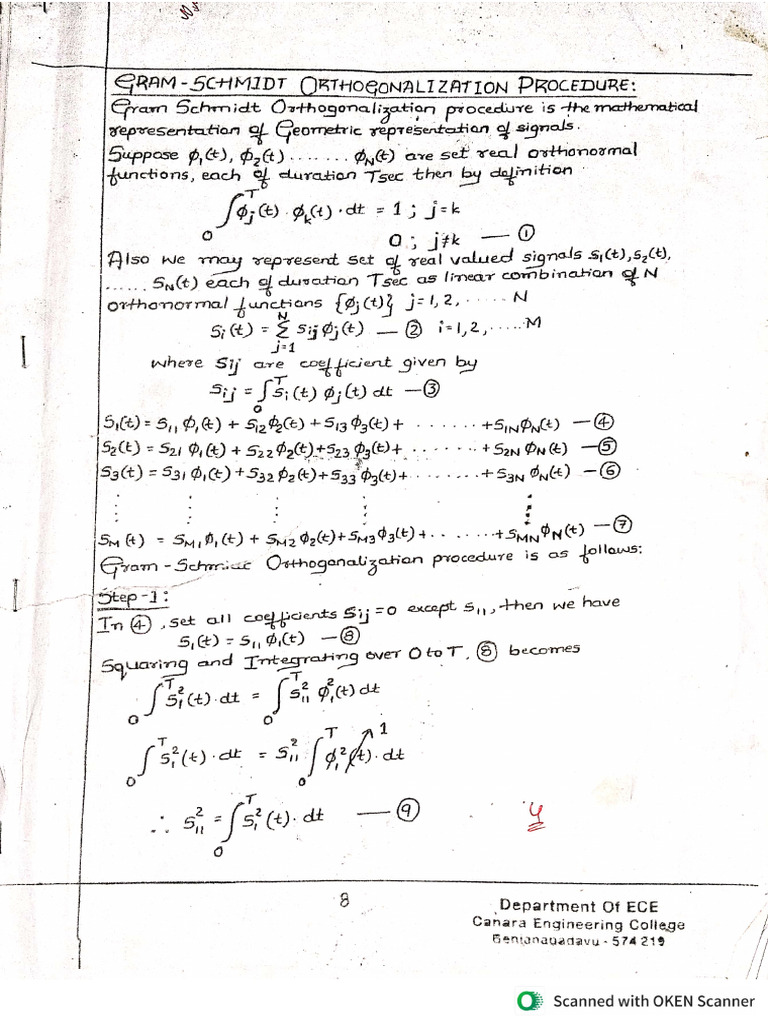 GRAM-SCHMIDT ORTHOGONALIZATION PROCEDURE:
Gram Schmidt Orthogonalization procedure is the mathematical
representation of Geometric representation of signals.
Suppose ϕ₁(t), ϕ₂(t) ....... ϕ_N(t) are set real orthonormal
functions, each of duration Tsec then by definition
∫₀ᵀ ϕ_j(t) · ϕ_k(t) · dt = 1 ; j=k
0 ; j≠k — ①
Also we may represent set of real valued signals s₁(t), s₂(t),
...... S_N(t) each of duration Tsec as linear combination of N
orthonormal functions {ϕ_j(t)} j=1,2, ...... N
S_i(t) = Σ_{j=1}^{N} S_ij ϕ_j(t) — ② i=1,2, ..... M
where Sij are coefficient given by
S_ij = ∫₀ᵀ S_i(t) ϕ_j(t) dt — ③
S₁(t) = S₁₁ ϕ₁(t) + S₁₂ ϕ₂(t) + S₁₃ ϕ₃(t) + ....... + S_1N ϕ_N(t) — ④
S₂(t) = S₂₁ ϕ₁(t) + S₂₂ ϕ₂(t) + S₂₃ ϕ₃(t) + ....... + S_2N ϕ_N(t) — ⑤
S₃(t) = S₃₁ ϕ₁(t) + S₃₂ ϕ₂(t) + S₃₃ ϕ₃(t) + ....... + S_3N ϕ_N(t) — ⑥
⋮ ⋮ ⋮ ⋮ ⋮ ⋮
S_M(t) = S_M1 ϕ₁(t) + S_M2 ϕ₂(t) + S_M3 ϕ₃(t) + ....... + S_MN ϕ_N(t) — ⑦
Gram-Schmidt Orthogonalization procedure is as follows:
Step-1:
In ④, set all coefficients Sij = 0 except S₁₁, then we have
S₁(t) = S₁₁ ϕ₁(t) — ⑧
Squaring and Integrating over 0 to T, ⑧ becomes
∫₀ᵀ S₁²(t) · dt = ∫₀ᵀ S₁₁² ϕ₁²(t) dt
∫₀ᵀ S₁²(t) · dt = S₁₁² ∫₀ᵀ ϕ₁²(t) · dt 1
∴ S₁₁² = ∫₀ᵀ S₁²(t) · dt — ⑨
4
8
Department Of ECE
Canara Engineering College
574 219
Scanned with OKEN Scanner